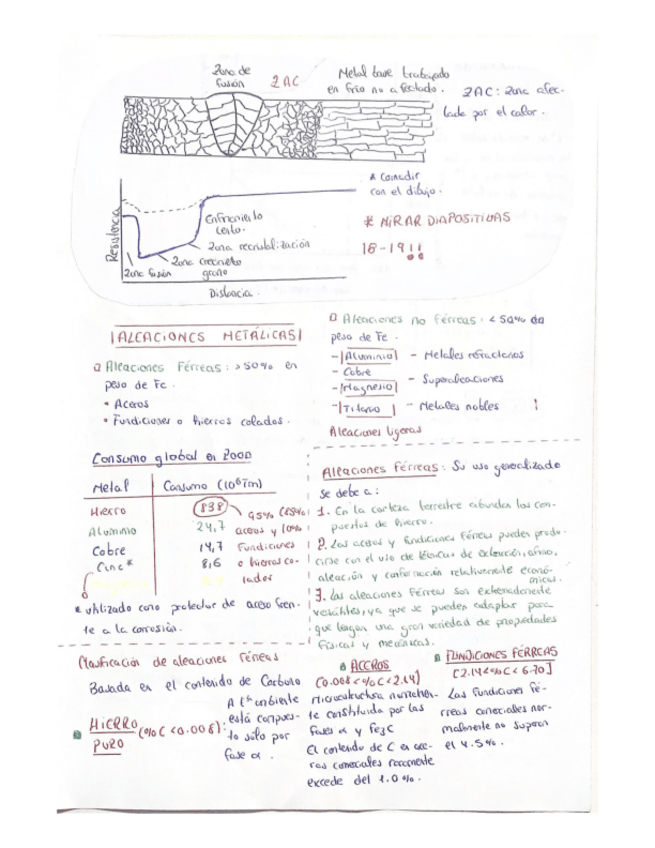 Zona de
fusión
ZAC
Metal base trabajado
en frío no afectado.
ZAC: Zona afec-
tada por el calor.
A coincidir
con el dibujo.
Resistencia
Enfriamiento
lento.
zona recristalización
Zona crecimiento
grano
Zona fusión
Distancia.
* MIRAR DIAPOSITIVAS
18-19!!
ALEACIONES METÁLICAS
Aleaciones Férreas: >50% en
peso de Fe.
• Aceros
• Fundiciones o hierros colados.
Aleaciones no férreas: <50% en
peso de Fe.
- Aluminio
- Cobre
- Magnesio
- Titanio
- Metales refractarios
- Superaleaciones
- Metales nobles
Aleaciones ligeras
Consumo global en 2000
Metal Consumo (10⁶Tm)
Hierro 838
Aluminio 24,7
Cobre 14,7
Cinc* 8,6
95% (85%
aceros y 10%
fundiciones
o hierros co-
lados
* utilizado como protector de acero fren-
te a la corrosión.
Aleaciones Férreas: Su uso generalizado
se debe a:
1. En la corteza terrestre abundan los com-
puestos de hierro.
2. Los aceros y fundiciones férreas pueden produ-
cirse con el uso de técnicas de extracción, afino,
aleación y conformación relativamente econó-
micas.
3. Las aleaciones férreas son extremadamente
versátiles, ya que se pueden adaptar para
que tengan una gran variedad de propiedades
físicas y mecánicas.
Clasificación de aleaciones férreas
Basada en el contenido de Carbono
HIERRO
PURO
(%C <0.008):
A tª ambiente
está compues-
to sólo por
fase α.
ACEROS
(0.008<%C<2.14)
Microestructura normalmen-
te constituida por las
fases α y Fe3C
El contenido de C en ace-
ros comerciales raramente
excede del 1.0%.
FUNDICIONES FÉRREAS
[2.14<%C<6.70]
Las fundiciones fé-
rreas comerciales nor-
malmente no superan
el 4.5%.